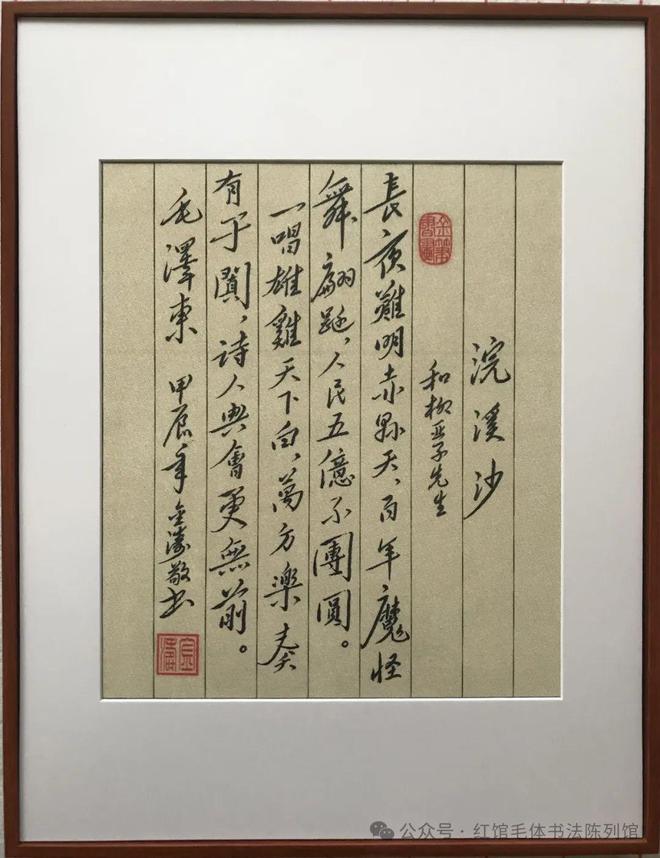 浣溪沙
和柳亚子先生
長夜難明赤縣天，百年魔怪
舞翩跹，人民五億不團圓。
一唱雄雞天下白，萬方樂奏
有于闐，詩人興會更無前。
毛澤東 甲辰年 金濤敬书
金濤
公众号·红馆毛体书法陈列馆